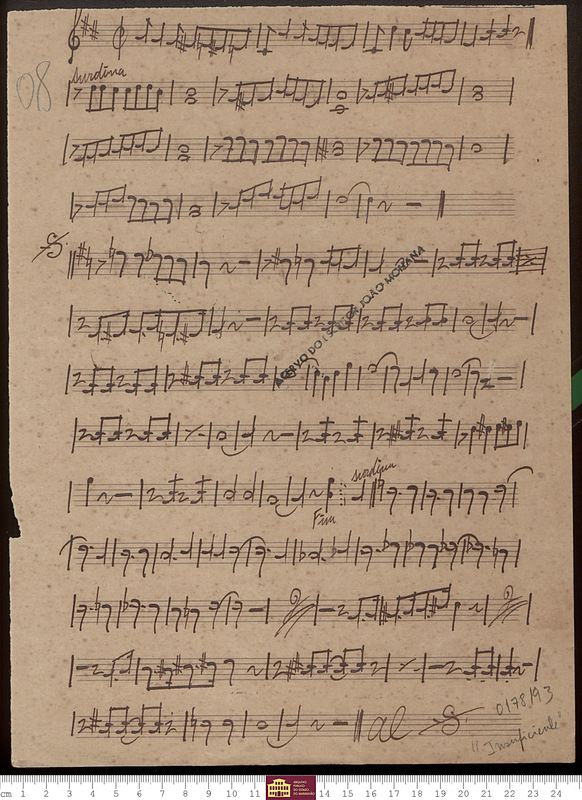 surdina
08
ACERVO DO
JOÃO MOHANA
surdina
Fim
al
0178/93
"Insuficiente"
cm 1 2 3 4 5 6 7 8 9 10 11 12 13 14 15 16 17 18 19 20 21 22 23 24
ARQUIVO
PÚBLICO
DO ESTADO
DO MARANHÃO